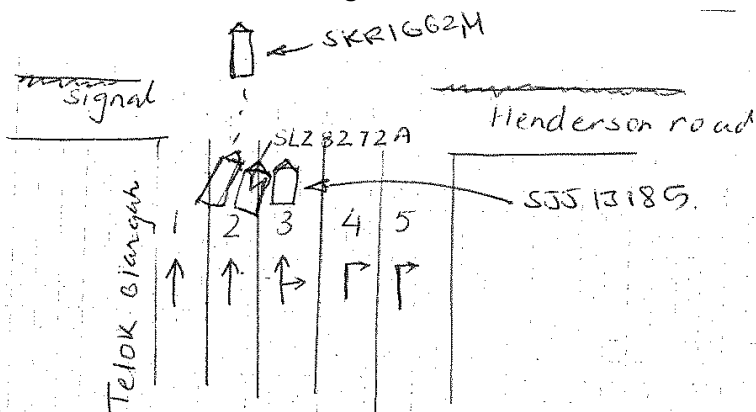 SKR1662M
Signal
Henderson road
SLZ8272A
SJJ1318S.
1 2 3 4 5
Telok Blangah